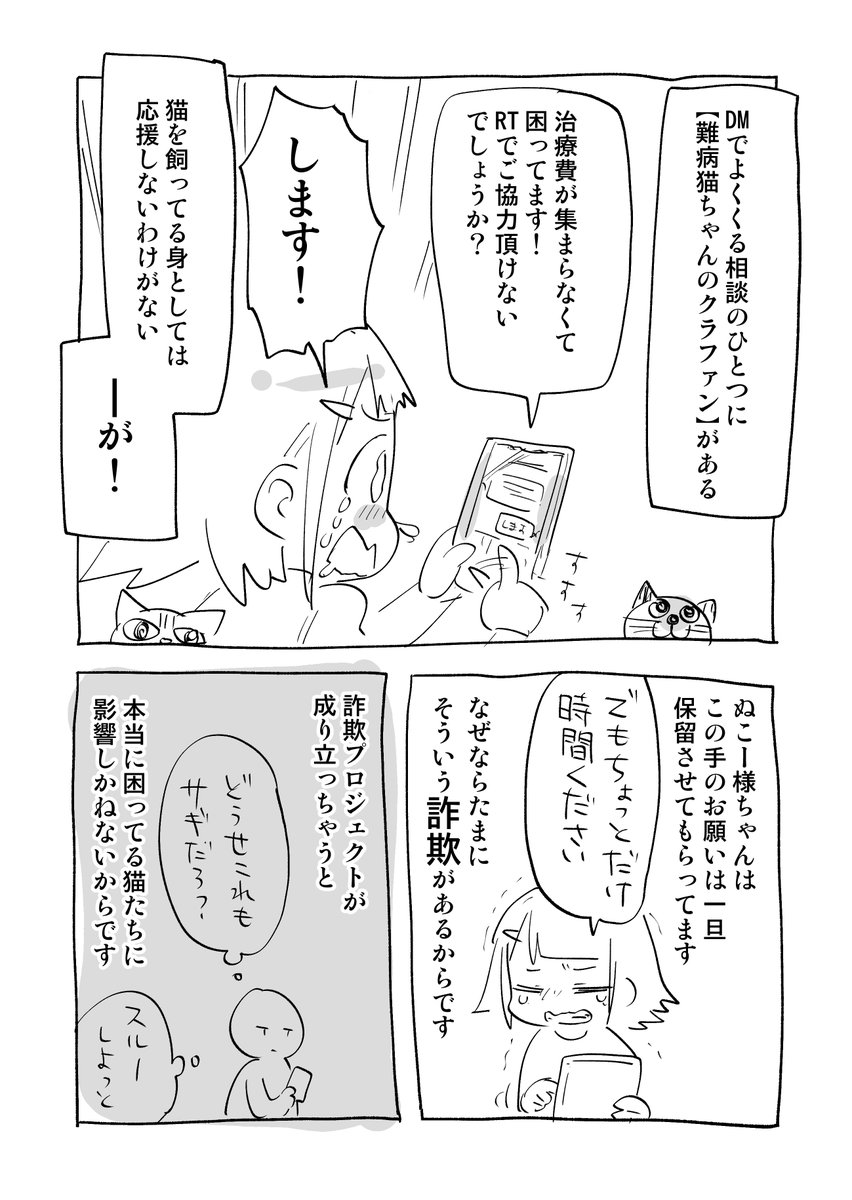 DMでよくくる相談のひとつに
【難病猫ちゃんのクラファン】がある
治療費が集まらなくて
困ってます!
RTでご協力頂けない
でしょうか?
します!
猫を飼ってる身としては
応援しないわけがない
ーが!
します
すすす
ぬこー様ちゃんは
この手のお願いは一旦
保留させてもらってます
でもちょっとだけ
時間ください
なぜならたまに
そういう詐欺があるからです
詐欺プロジェクトが
成り立っちゃうと
どうせこれも
サギだろ?
本当に困ってる猫たちに
影響しかねないからです
スルー
しよっと